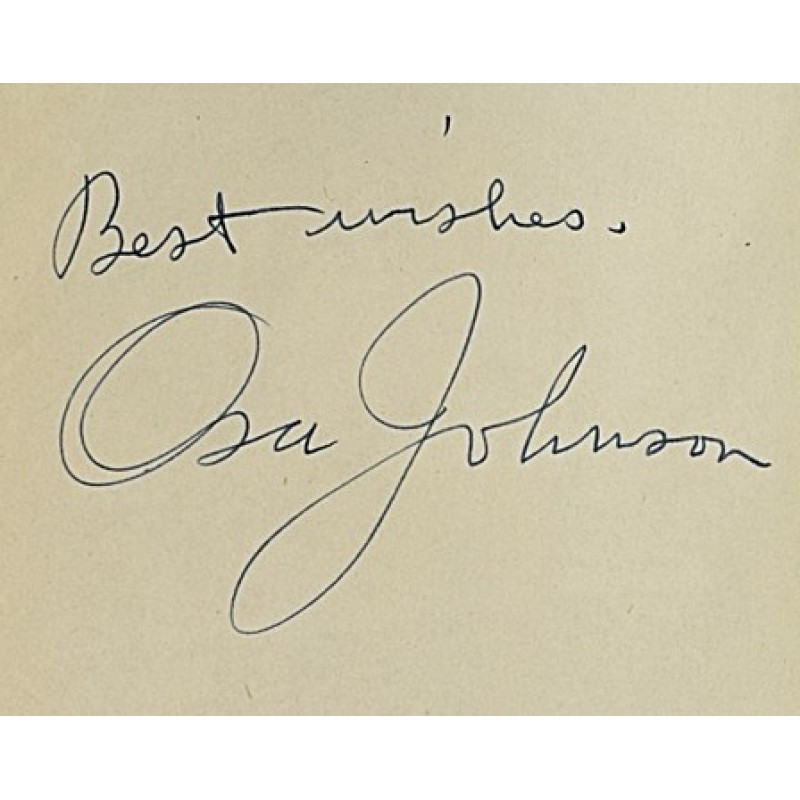 Best wishes.
Osa Johnson